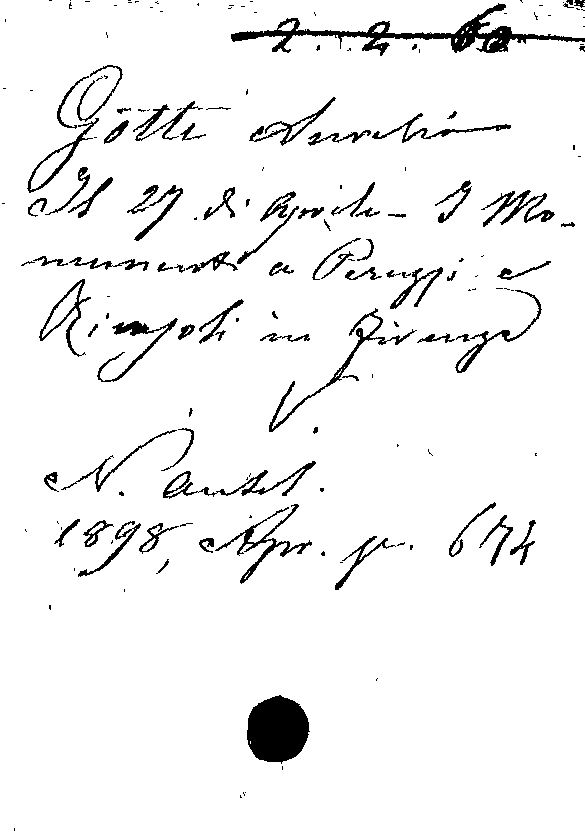 2. 2. 60
Gotti Aurelio
Il 27 di Aprile - I Mo-
numenti a Peruzzi e
Ricasoli in Firenze
V.
N. Antol.
1898, Apr. p. 674